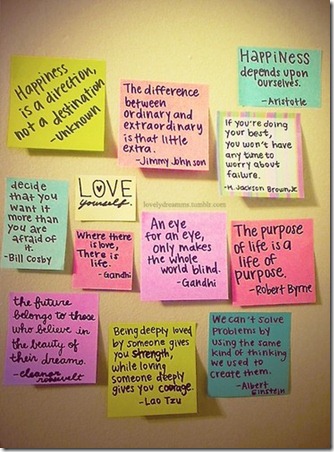 Happiness
is a direction,
not a destination
-unknown
The difference
between
ordinary and
extraordinary
is that little
extra.
-Jimmy Johnson
HAPPiNESS
depends upon
ourselves.
-Aristotle
If you're doing
your best,
you won't have
any time to
worry about
failure.
-H. Jackson Brown, Jr.
decide
that you
want it
more than
you are
afraid of
it.
-Bill Cosby
LOVE
yourself.
lovelydreamms.tumblr.com
Where there
is love,
There is
life.
-Gandhi
An eye
for an eye,
only makes
the whole
world blind.
-Gandhi
The purpose
of life is a
life of
purpose.
-Robert Byrne
the future
belongs to those
who believe in
the beauty of
their dreams.
-eleanor roosevelt
Being deeply loved
by someone gives
you strength,
while loving
someone deeply
gives you courage.
-Lao Tzu
We can't solve
Problems by
using the same
kind of thinking
we used to
create them.
-Albert
Einstein